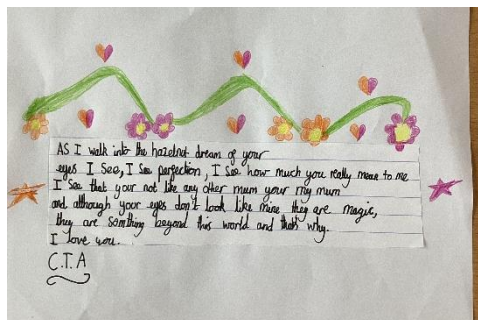 AS I walk into the hazelnut dream of your
eyes I see, I see perfection, I see how much you really mean to me
I see that your not like any other mum your my mum
and although your eyes don't look like mine they are magic,
they are somthing beyond this world and that's why.
I love you.
C.T.A